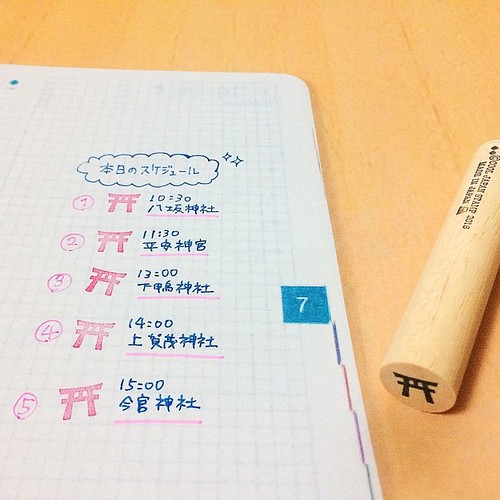 本日のスケジュール
① 10:30
八坂神社
② 11:30
平安神宮
③ 13:00
下鴨神社
④ 14:00
上賀茂神社
⑤ 15:00
今宮神社
7
©COOL JAPAN STAMP 2015
MADE IN JAPAN